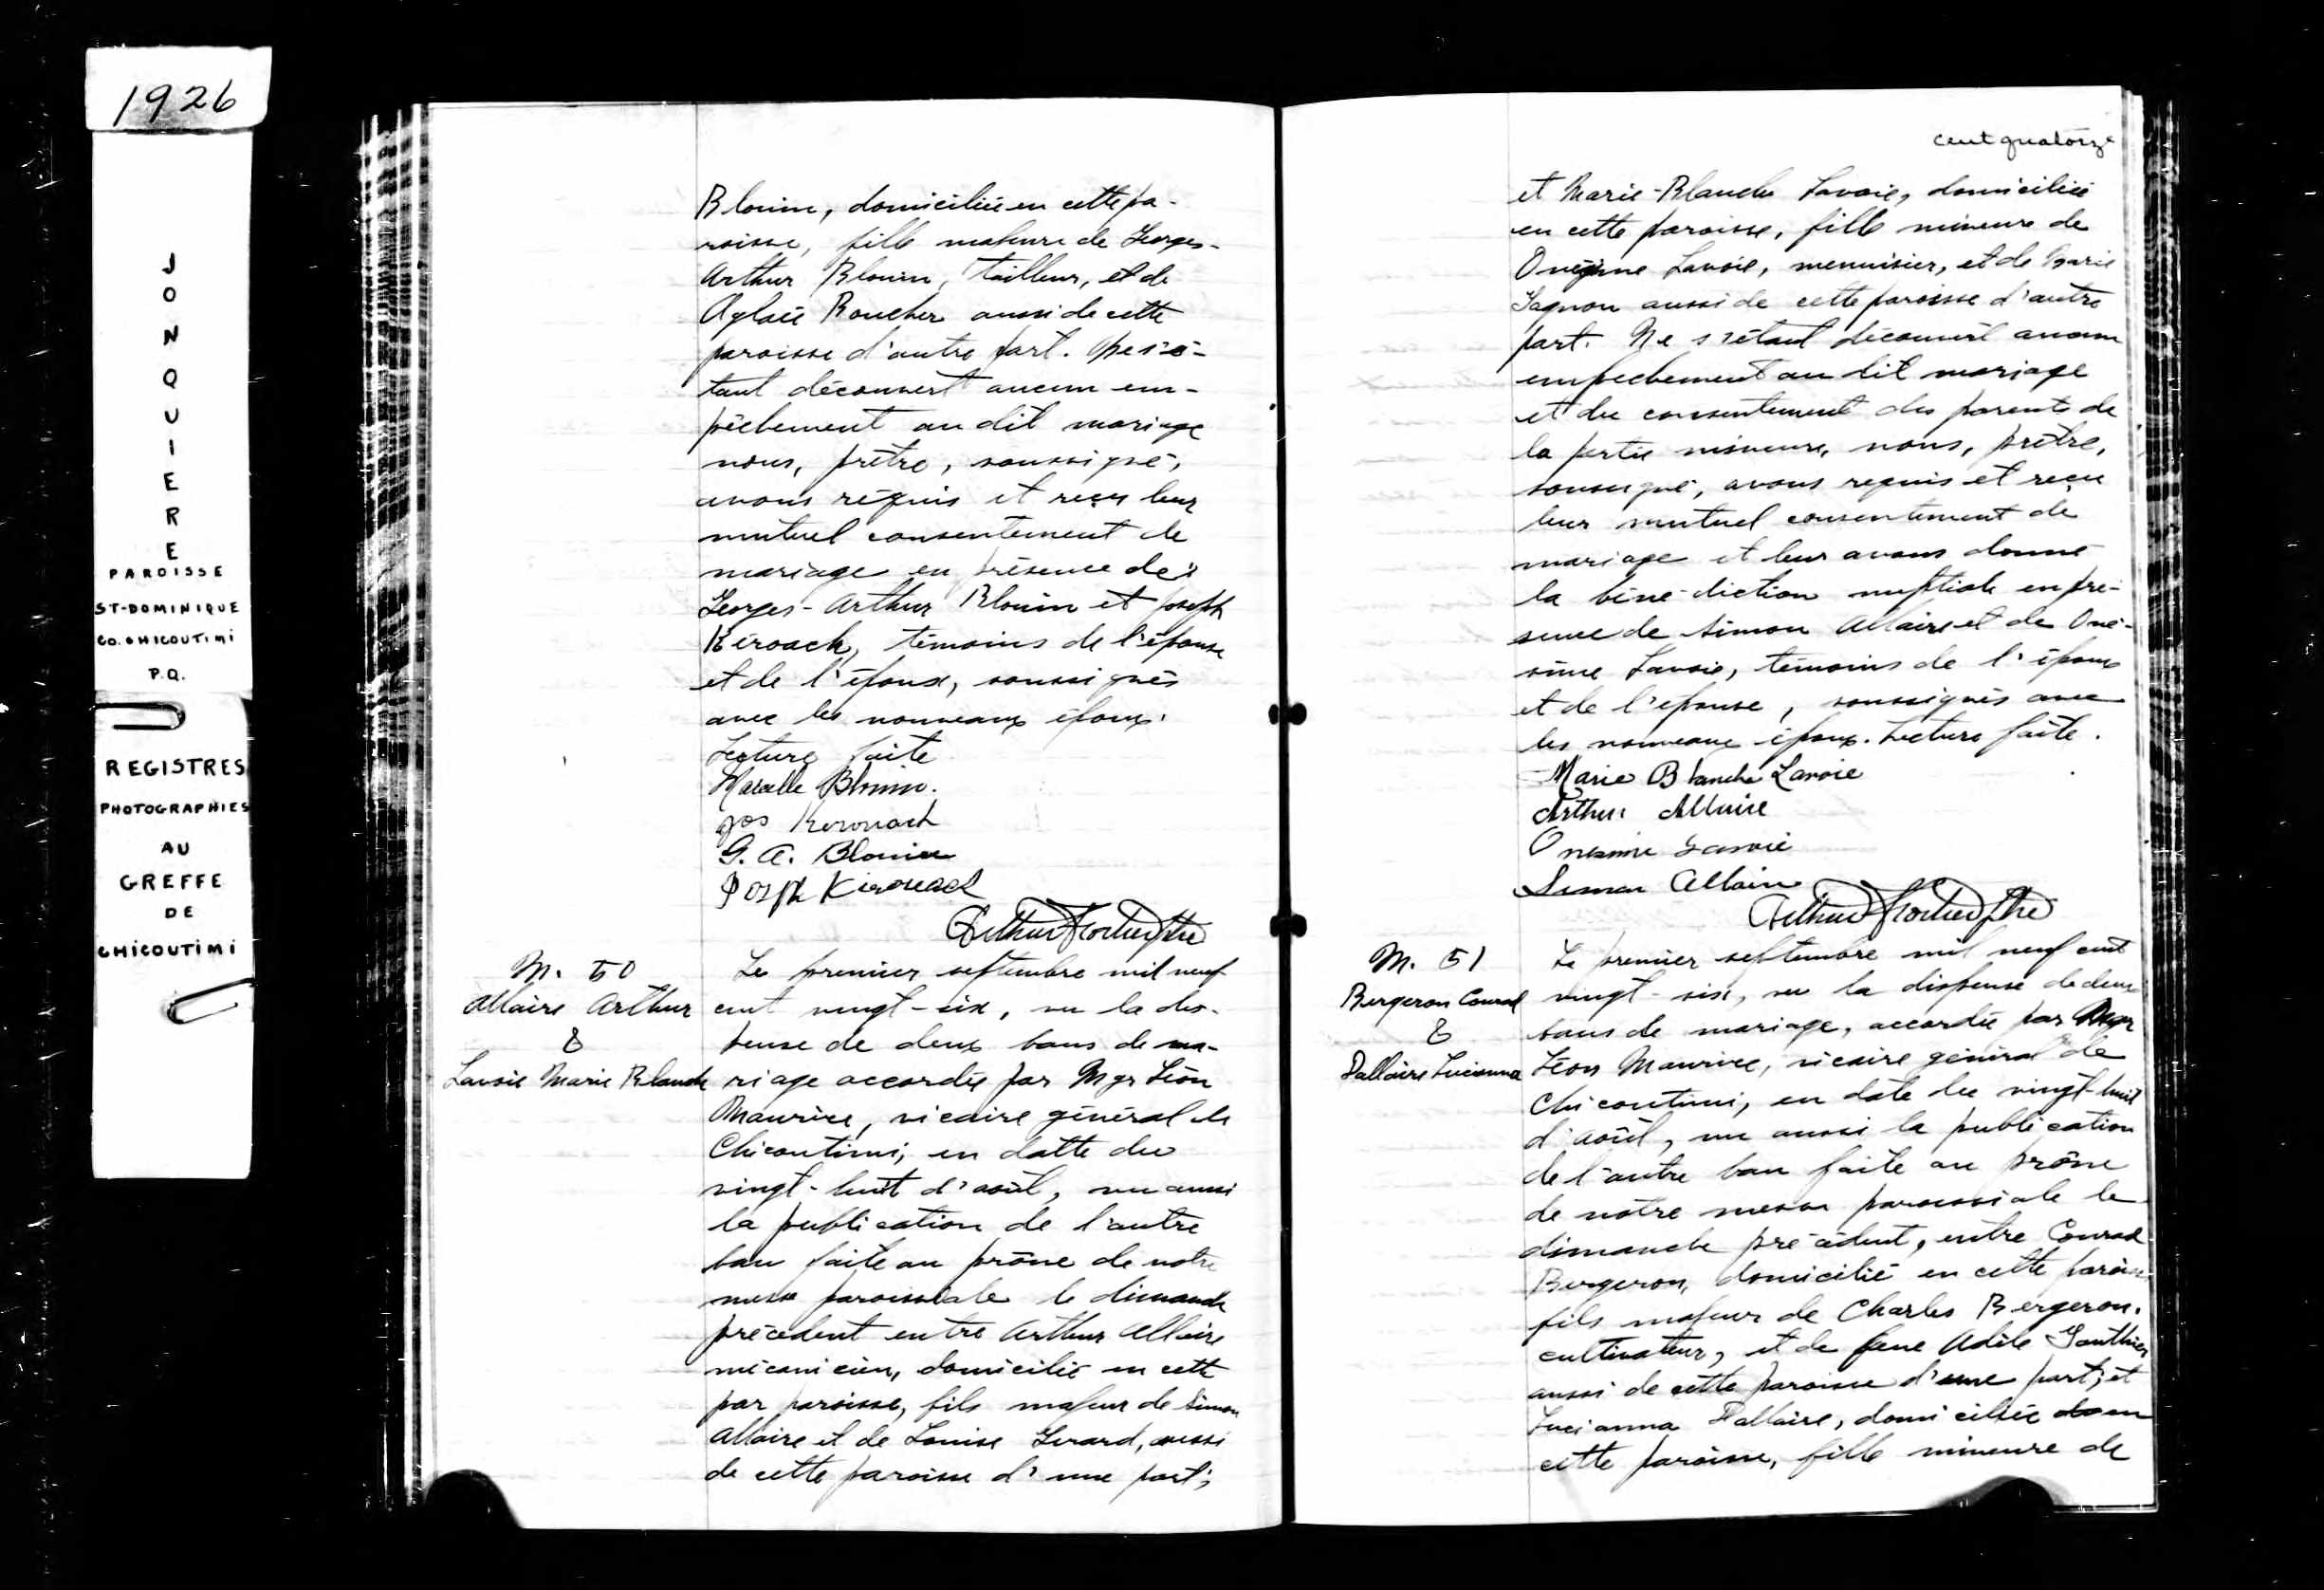 1926
JONQUIERE
PAROISSE
ST-DOMINIQUE
CO. CHICOUTIMI
P.Q.
REGISTRES
PHOTOGRAPHIES
AU
GREFFE
DE
CHICOUTIMI
Blouin, domiciliée en cette pa-
roisse, fille majeure de Georges-
Arthur Blouin, tailleur, et de
Aglaée Boucher aussi de cette
paroisse d'autre part. Ne s'é-
tant découvert aucun em-
pêchement au dit mariage
nous, prêtre, soussigné,
avons requis et reçu leur
mutuel consentement de
mariage en présence de
Georges-Arthur Blouin et Joseph
Kéroack, témoins de l'épouse
et de l'époux, soussignés
avec les nouveaux époux.
Lecture faite
Marcelle Blouin.
Jos Kérouack
G. A. Blouin
Joseph Kirouack
Arthur ptre
M. 50
Allaire Arthur
&
Lavoie Marie Blanche
Le premier septembre mil neuf
cent vingt-six, vu la dis-
pense de deux bans de ma-
riage accordée par Mgr Léon
Maurice, vicaire général de
Chicoutimi, en datte du
vingt-huit d'août, vu aussi
la publication de l'autre
ban faite au prône de notre
messe paroissiale le dimanche
précédent entre Arthur Allaire
mécanicien, domicilié en cette
par paroisse, fils majeur de Simon
Allaire et de Louise Gerard, aussi
de cette paroisse d'une part;
cent quatorze
et Marie-Blanche Lavoie, domiciliée
en cette paroisse, fille mineure de
Onésime Lavoie, menuisier, et de Marie
Gagnon aussi de cette paroisse d'autre
part. Ne s'étant découvert aucun
empechement au dit mariage
et du consentement des parents de
la partie mineure, nous, prêtre,
soussigné, avons requis et reçu
leur mutuel consentement de
mariage et leur avons donné
la bénédiction nuptiale en pré-
sence de Simon Allaire et de Oné-
sime Lavoie, témoins de l'époux
et de l'épouse, soussignés avec
les nouveaux époux. Lecture faite.
Marie Blanche Lavoie
Arthur Allaire
Onesime Lavoie
Simon Allaire
Arthur ptre
M. 51
Bergeron Conrad
&
Dallaire Lucianna
Le premier septembre mil neuf cent
vingt-six, vu la dispense de deux
bans de mariage, accordée par Mgr
Léon Maurice, vicaire général de
Chicoutimi, en date du vingt-huit
d'août, vu aussi la publication
de l'autre ban faite au prône
de notre messe paroissiale le
dimanche précédent, entre Conrad
Bergeron, domicilié en cette paroisse
fils majeur de Charles Bergeron,
cultivateur, et de feue Adèle Gauthier
aussi de cette paroisse d'une part; et
Lucianna Dallaire, domiciliée en
cette paroisse, fille mineure de